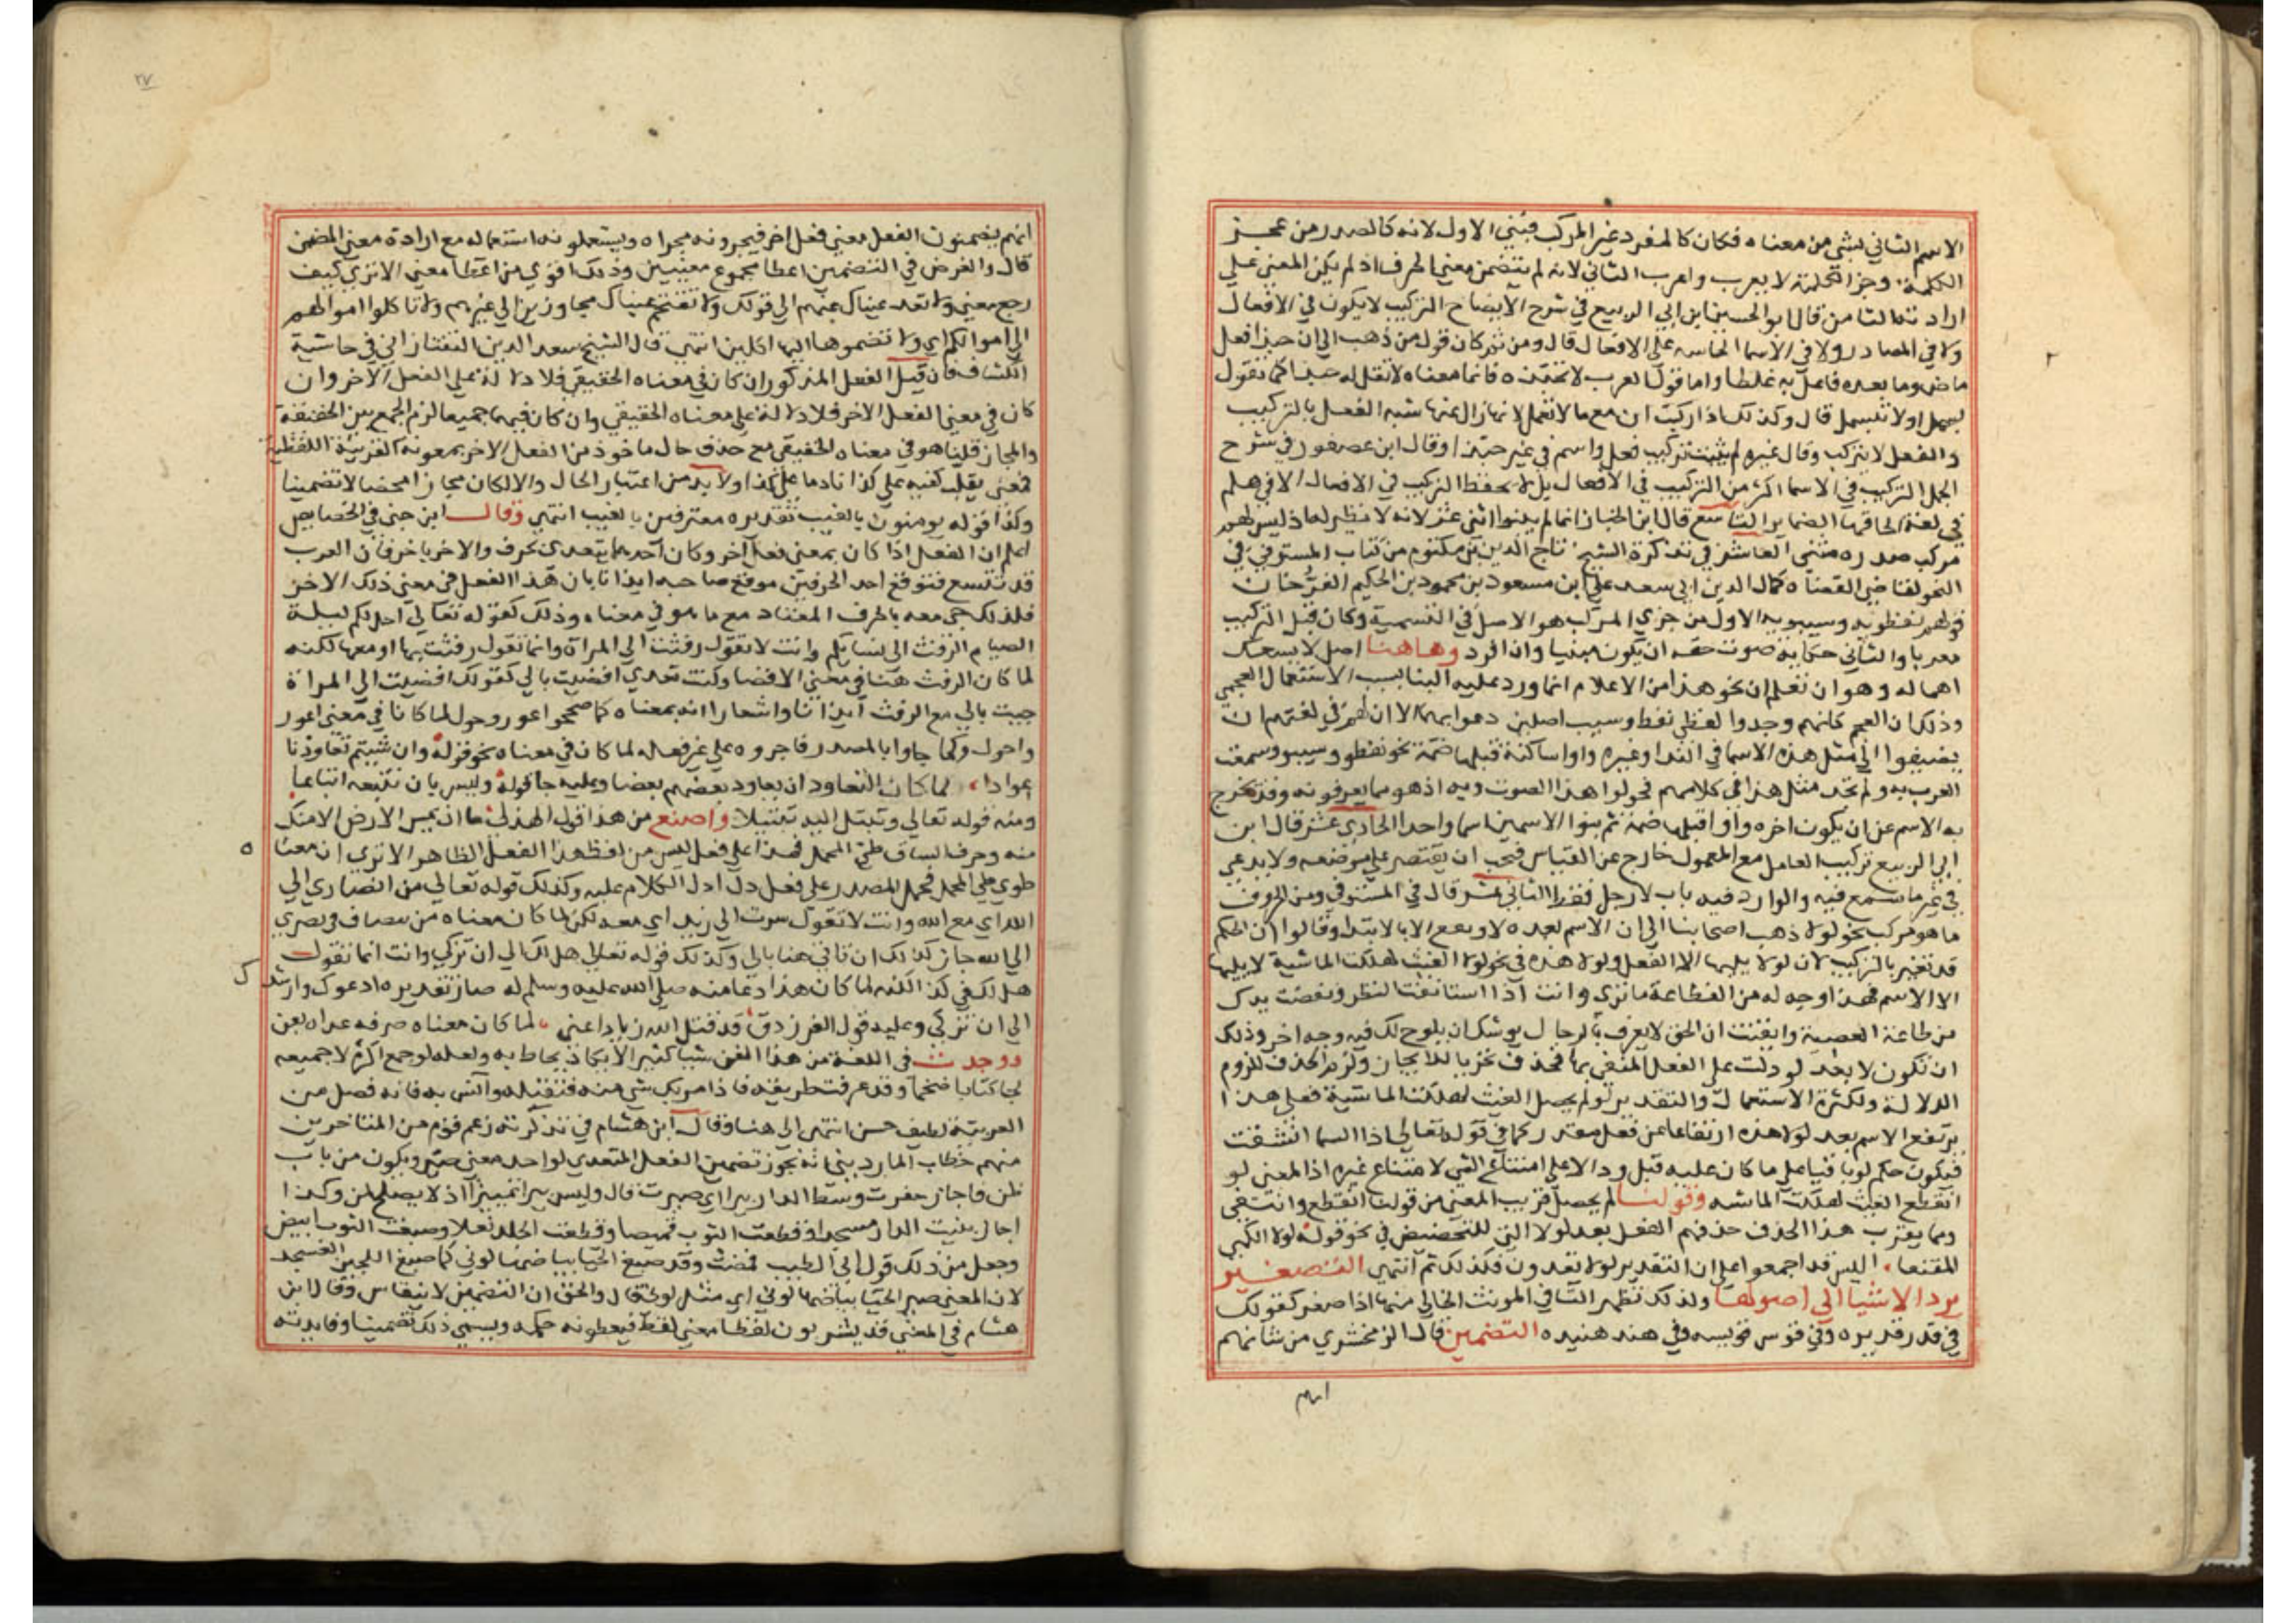 الاسم الثاني لشي من معناه فكان كالمفرد غير المركب فبني الاول لانه كالصدر من عجز
الكلمة وجز الكلمة لا يعرب واعرب الثاني لانه لم يتضمن معني الحرف اذ لم يكن المعني علي
ارادته الثامن قال ابو الحسين ابن ابي الربيع في شرح الايضاح التركيب لا يكون في الافعال
ولا في المصادر ولا في الاسما علي الافعال قال ومن ثم كان قول من ذهب الي ان حبذا فعل
ماض وما بعده فاعل به غلطا واما قول العرب لا تحبذه فانما معناه لا تقل له حبذا كما تقول
بسمل اولا تبسمل قال وكذلك اذا ركبت ان مع ما لا تعمل لانها زال عنها شبه الفعل بالتركيب
والفعل لا يتركب وقال غيره لم يثبت تركيب فعل واسم في غير حبذا وقال ابن عصفور في شرح
الجمل التركيب في الاسما اكثر من التركيب في الافعال بل لا يحفظ التركيب في الافعال الا في هلم
في لغة الحاقها الضماير التاسع قال ابن الخباز انما لم يبنوا اثني عشر لانه لا نظير له اذ ليس لهم
مركب صدره مثني العاشر في تذكرة الشيخ تاج الدين بن مكتوم من كتاب المستوفي في
النحو لقاضي القضاه كمال الدين ابي سعد علي ابن مسعود بن محمود بن الحكيم الفرخان
قولهم نفطويه وسيبويه الاول من جزي المركب هو الاصل في التسمية وكان قبل التركيب
معربا والثاني حكاية صوت حقه ان يكون مبنيا وان افرد وهاهنا اصل لا يسعك
اهماله وهو ان تعلم ان نحو هذا من الاعلام انما ورد عليه البنا بسبب الاستعمال العجمي
وذلك ان العجم كانهم وجدوا لفظي نفط وسيب اصلين دعوا بهما الا ان لهم في لغتهم ان
يضيفوا الي مثل هذه الاسما في الندا وغيره واوا ساكنة قبلها ضمة نحو نفطو وسيبو وسمعت
العرب به ولم تجد مثل هذا في كلامهم فحولوا هذا الصوت ويه اذ هو مما يعرفونه وقد تخرج
به الاسم عن ان يكون اخره واو اقبلها ضمة ثم بنوا الاسمين اسما واحدا الحادي عشر قال ابن
ابي الربيع تركيب العامل مع المعمول خارج عن القياس فيجب ان يقتصر علي موضعه ولا يدعي
في غير ما سمع فيه والوارد فيه باب لا رجل فقط الثاني عشر قال في المستوفي ومن الحروف
ما هو مركب نحو لولا ذهب اصحابنا الي ان الاسم بعده لا يرتفع الا بالابتدا وقالوا ان الحكم
قد تغير بالتركيب لان لو لا يليها الا الفعل ولولا هذه في نحو لولا الغيث لهلكت الماشية لا يليها
الا الاسم فهذا وجه له من الفظاعة ما تري وانت اذا استانفت النظر ونفضت يدك
من طاعة العصبية وايقنت ان الحق لا يعرف بالرجال يوشك ان يلوح لك فيه وجه اخر وذلك
ان تكون لا بعد لو دلت علي الفعل المنفي بها فحذف تخريا للايجاز ولزم الحذف للزوم
الدلالة ولكثرة الاستعمال والتقدير لو لم يحصل الغيث لهلكت الماشية فعلي هذا
يرتفع الاسم بعد لولا هذه ارتفاعا عن فعل مقدر كما في قوله تعالي اذا السما انشقت
فيكون حكم لو باقيا علي ما كان عليه قبل ودالا علي امتناع الشي لامتناع غيره اذا المعني لو
انقطع الغيث لهلكت الماشيه وقولنا لم يحصل قريب المعني من قولنا انقطع وانت في
ومما يقرب هذا الحذف حذفهم الفعل بعد لولا التي للتحضيض في نحو قوله لولا الكمي
المقنعا اليس قد اجمعوا علي ان التقدير لولا تعدون فكذلك ثم انتهي التصغير
يرد الاشيا الي اصولها ولذلك تظهر التا في المونث الخالي منها اذا صغر كقولك
في قدر قديره وفي قوس قويسه وفي هند هنيده التضمين قال الزمخشري من شانهم
انهم
٢٧
انهم يضمنون الفعل معني فعل اخر فيجرونه مجراه ويستعملونه استعماله مع ارادة معني المضمن
قال والغرض في التضمين اعطا مجموع معنيين وذلك اقوي من اعطا معني الا تري كيف
رجع معني ولا تعد عيناك عنهم الي قولك ولا تقتحم عيناك مجاوزين الي غيرهم ولا تاكلوا اموالهم
الي اموالكم اي ولا تضموها اليها اكلين انتهي قال الشيخ سعد الدين التفتازاني في حاشية
الكشاف فان قيل الفعل المذكور ان كان في معناه الحقيقي فلا دلالة علي الفعل الاخر وان
كان في معني الفعل الاخر فلا دلالة علي معناه الحقيقي وان كان فيهما جميعا لزم الجمع بين الحقيقة
والمجاز قلنا هو في معناه الحقيقي مع حذف حال ماخوذ من الفعل الاخر بمعونة القرينة اللفظية
فمعني يقلب كفيه علي كذا نادما علي كذا ولا بد من اعتبار الحال والا لكان مجازا محضا لا تضمينا
وكذا قوله يومنون بالغيب تقديره معترفين بالغيب انتهي وقال ابن جني في الخصايص
اعلم ان الفعل اذا كان بمعني فعل آخر وكان احدهما يتعدي بحرف والاخر باخر فان العرب
قد تتسع فتوقع احد الحرفين موقع صاحبه ايذانا بان هذا الفعل في معني ذلك الاخر
فلذلك جي معه بالحرف المعتاد مع ما هو في معناه وذلك كقوله تعالي احل لكم ليلة
الصيام الرفث الي نسايكم وانت لا تقول رفثت الي المرآة وانما تقول رفثت بها او معها لكنه
لما كان الرفث هنا في معني الافضا وكنت تعدي افضيت بالي كقولك افضيت الي المراة
جيت بالي مع الرفث ايذانا واشعارا انه بمعناه كما صححوا عور وحول لما كانا في معني اعور
واحول وكما جاوا بالمصدر فاجروه علي غير فعله لما كان في معناه نحو قوله وان شيتم تعاودنا
عوادا لما كان التعاود ان يعاود بعضهم بعضا وعليه جا قوله وليس بان تتبعه اتباعا
ومنه قوله تعالي وتبتل اليه تبتيلا واصنع من هذا قول الهذلي ما ان يمس الارض الا منك
منه وحرف الساق طي المحمل فهذا علي فعل ليس من لفظ هذا الفعل الظاهر الا تري ان معناه
طوي طي المحمل فحمل المصدر علي فعل دل اول الكلام عليه وكذلك قوله تعالي من انصاري الي
الله اي مع الله وانت لا تقول سرت الي زيد اي معه لكن لما كان معناه من ينضاف في نصري
الي الله جاز كذلك ان تاتي هنا بالي وكذلك قوله تعالي هل لك الي ان تزكي وانت انما تقول
هل لك في كذا لكنه لما كان هذا دعا منه صلي الله عليه وسلم له صار تقديره ادعوك وارشدك
الي ان تزكي وعليه قول الفرزدق قد قتل الله زيادا عني لما كان معناه صرفه عداه بعن
ووجدت في اللغة من هذا الفن شيا كثيرا لا يكاد يحاط به ولعله لو جمع اكثره لا جميعه
لجا كتابا ضخما وقد عرفت طريقه فاذا مر بك شي منه فتقبله وآنس به فانه فصل من
العربية لطيف حسن انتهي الي هنا وقال ابن هشام في تذكرته زعم قوم من المتاخرين
منهم خطاب الماردي انه يجوز تضمين الفعل المتعدي لواحد معني صير ويكون من باب
ظن فاجاز حفرت وسط الدار بيرا اي صيرت قال وليس بيرا تمييزا اذ لا يصلح لمن وكذا
اجاز بنيت الدار مسجدا وقطعت الثوب قميصا وقطعت الجلد نعلا وصبغت الثوب ابيض
وجعل من ذلك قول ابي الطيب فمضت وقد صبغ الحيا بياضها لوني كما صبغ اللجين العسجد
لان المعني صير الحيا بياضها لوني اي مثل لوني قال والحق ان التضمين لا ينقاس وقال ابن
هشام في المغني قد يشربون لفظا معني لفظ فيعطونه حكمه ويسمي ذلك تضمينا وفايدته